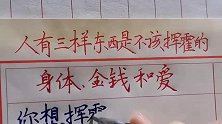 人有三样东西是不该挥霍的
身体、金钱和爱
你想挥霍